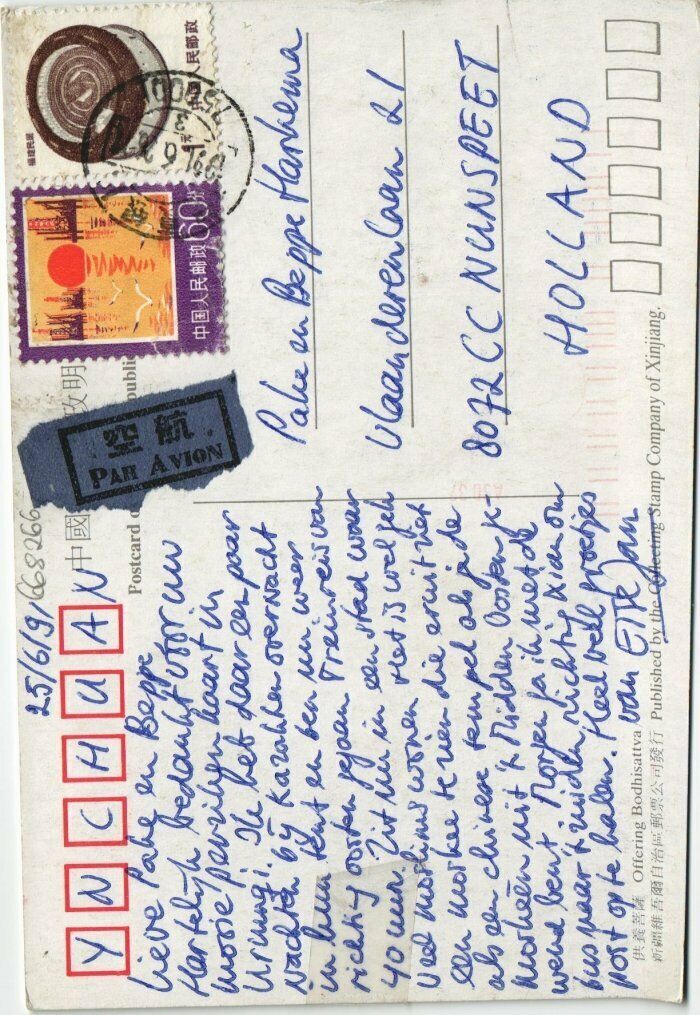 25/6/91
668266
YNCHUAN
Lieve Pake en Beppe
Hartelijk bedankt voor uw
mooie perzikyn kaart in
Urumqi. Ik heb daar een paar
nachten bij Kazahken overnacht
in hun tent en ben nu weer
richting oosten gegaan. Treinreis van
40 uur. Zit nu in een stad waar
veel moslims wonen. Het is wel gek
een moskee te zien die eruit ziet
als een chinese tempel als je de
moskeën uit 't Midden Oosten ge-
wend bent. Morgen ga ik met de
bus naar 't zuiden richting Xian om
post op te halen. Heel veel groetjes
van Elte Jan
Pake en Beppe Harkema
Vlaanderenlaan 21
8072 CC NUNSPEET
HOLLAND
1元
中国人民邮政
福建民居
中国人民邮政
60分
航空
PAR AVION
中國
政明
Postcard
public
供養菩薩 Offering Bodhisattva
新疆維吾爾自治區郵票公司發行 Published by the Collecting Stamp Company of Xinjiang.